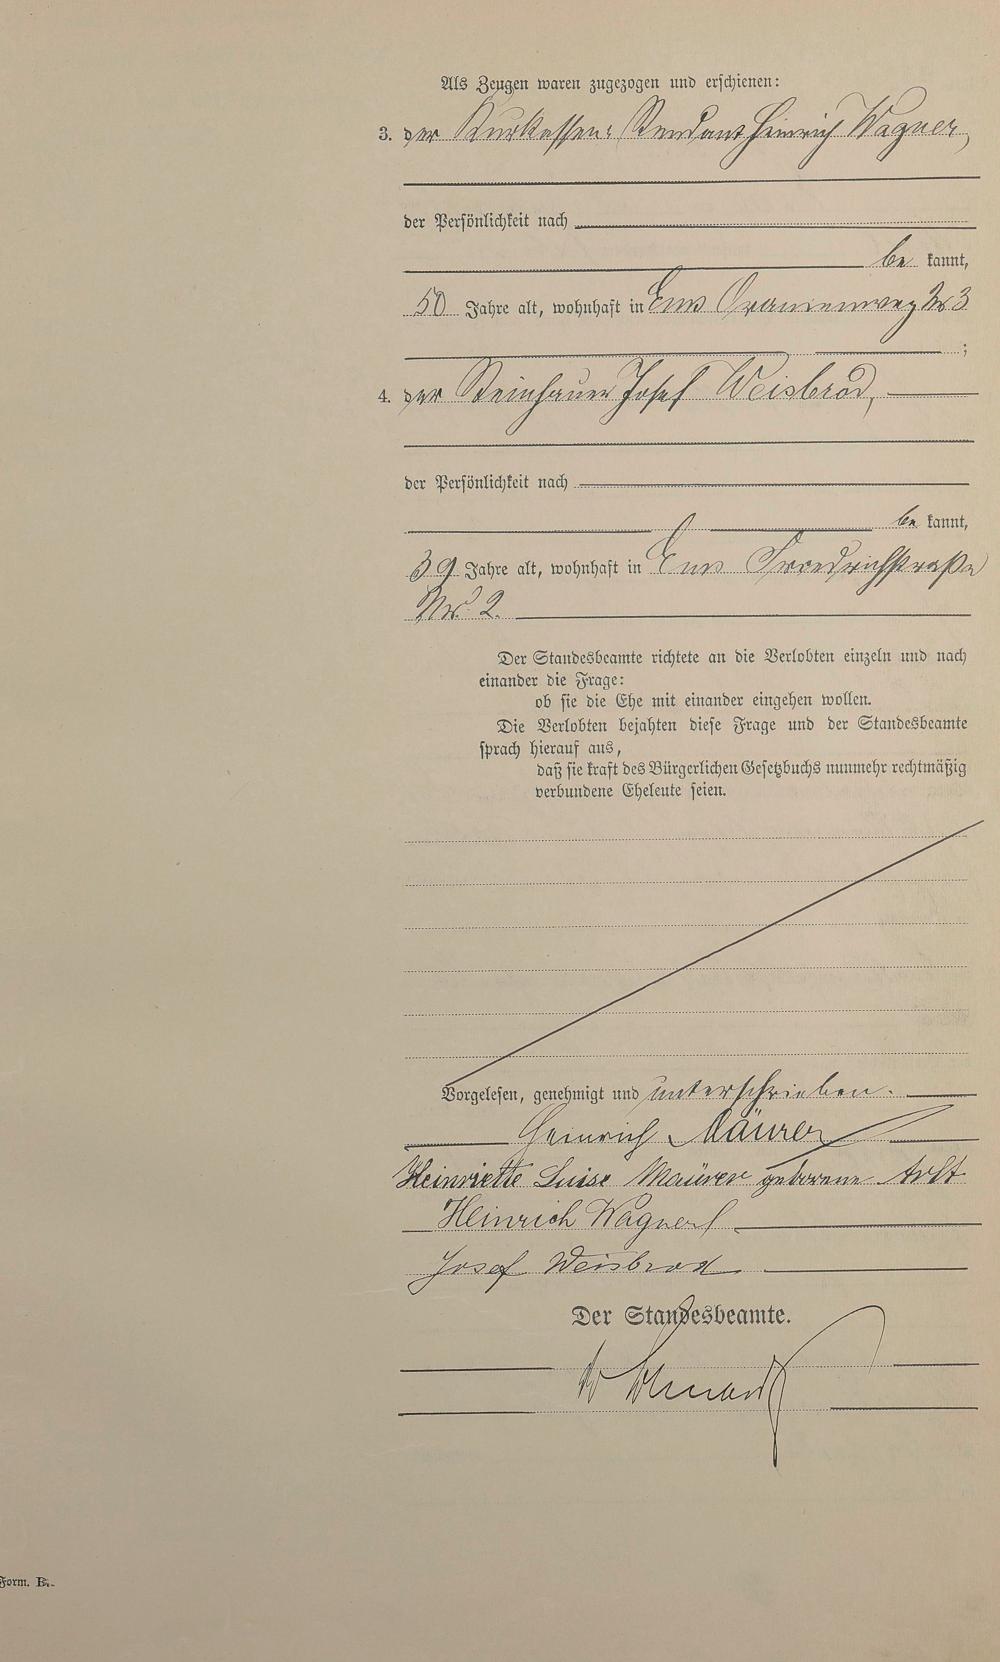 Als Zeugen waren zugezogen und erschienen:
3. der Kurkassen-Rendant Heinrich Wagner,
der Persönlichkeit nach
be kannt,
50 Jahre alt, wohnhaft in Ems Oranienweg Nr 3
;
4. der Steinhauer Josef Weisbrod,
der Persönlichkeit nach
be kannt,
39 Jahre alt, wohnhaft in Ems Friedrichstraße
Nr. 2.
Der Standesbeamte richtete an die Verlobten einzeln und nach
einander die Frage:
ob sie die Ehe mit einander eingehen wollen.
Die Verlobten bejahten diese Frage und der Standesbeamte
sprach hierauf aus,
daß sie kraft des Bürgerlichen Gesetzbuchs nunmehr rechtmäßig
verbundene Eheleute seien.
Vorgelesen, genehmigt und unterschrieben.
Heinrich Mäurer
Heinriette Luise Maürer geborene Arlt
Heinrich Wagner
Josef Weisbrod
Der Standesbeamte.
Form. B.